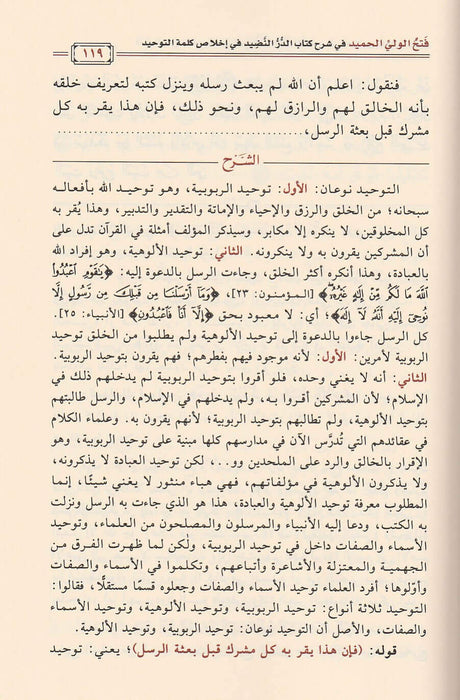 فَتحُ الوليّ الحميد في شرح كتاب الدُّرُّ النَّضِيد في إخلاص كلمة التوحيد
١١٩
فنقول: اعلم أن الله لم يبعث رسله وينزل كتبه لتعريف خلقه
بأنه الخالق لهم والرازق لهم، ونحو ذلك، فإن هذا يقر به كل
مشرك قبل بعثة الرسل،
الشَّرح
التوحيد نوعان: الأول: توحيد الربوبية، وهو توحيد الله بأفعاله
سبحانه؛ من الخلق والرزق والإحياء والإماتة والتقدير والتدبير، وهذا يُقر به
كل المخلوقين، لا ينكره إلا مكابر، وسيذكر المؤلف أمثلة في القرآن تدل على
أن المشركين يقرون به ولا ينكرونه. الثاني: توحيد الألوهية، وهو إفراد الله
بالعبادة، وهذا أنكره أكثر الخلق، وجاءت الرسل بالدعوة إليه: ﴿يَٰقَوْمِ ٱعْبُدُوا۟
ٱللَّهَ مَا لَكُم مِّنْ إِلَٰهٍ غَيْرُهُۥٓ﴾ [المؤمنون: ٢٣]، ﴿وَمَآ أَرْسَلْنَا مِن قَبْلِكَ مِن رَّسُولٍ إِلَّا
نُوحِىٓ إِلَيْهِ أَنَّهُۥ لَآ إِلَٰهَ﴾؛ أي: لا معبود بحق ﴿إِلَّآ أَنَا۠ فَٱعْبُدُونِ﴾ [الأنبياء: ٢٥].
كل الرسل جاءوا بالدعوة إلى توحيد الألوهية ولم يطلبوا من الخلق توحيد
الربوبية لأمرين: الأول: لأنه موجود فيهم بفطرهم؛ فهم يقرون بتوحيد الربوبية.
الثاني: أنه لا يغني وحده، فلو أقروا بتوحيد الربوبية لم يدخلهم ذلك في
الإسلام؛ لأن المشركين أقروا به، ولم يدخلهم في الإسلام، والرسل طالبتهم
بتوحيد الألوهية، ولم تطالبهم بتوحيد الربوبية؛ لأنهم يقرون به. وعلماء الكلام
في عقائدهم التي تُدرَّس الآن في مدارسهم كلها مبنية على توحيد الربوبية، وهو
الإقرار بالخالق والرد على الملحدين وو..، لكن توحيد العبادة لا يذكرونه،
ولا يذكرون الألوهية في مؤلفاتهم، فهي هباء منثور لا يغني شيئًا، إنما
المطلوب معرفة توحيد الألوهية والعبادة، هذا هو الذي جاءت به الرسل ونزلت
به الكتب، ودعا إليه الأنبياء والمرسلون والمصلحون من العلماء، وتوحيد
الأسماء والصفات داخل في توحيد الربوبية، ولكن لما ظهرت الفرق من
الجهمية والمعتزلة والأشاعرة وأتباعهم، وتكلموا في الأسماء والصفات
وأوّلوها؛ أفرد العلماء توحيد الأسماء والصفات وجعلوه قسمًا مستقلًّا، فقالوا:
التوحيد ثلاثة أنواع: توحيد الربوبية، وتوحيد الألوهية، وتوحيد الأسماء
والصفات، والأصل أن التوحيد نوعان: توحيد الربوبية، وتوحيد الألوهية.
قوله: (فإن هذا يقر به كل مشرك قبل بعثة الرسل)؛ يعني: توحيد